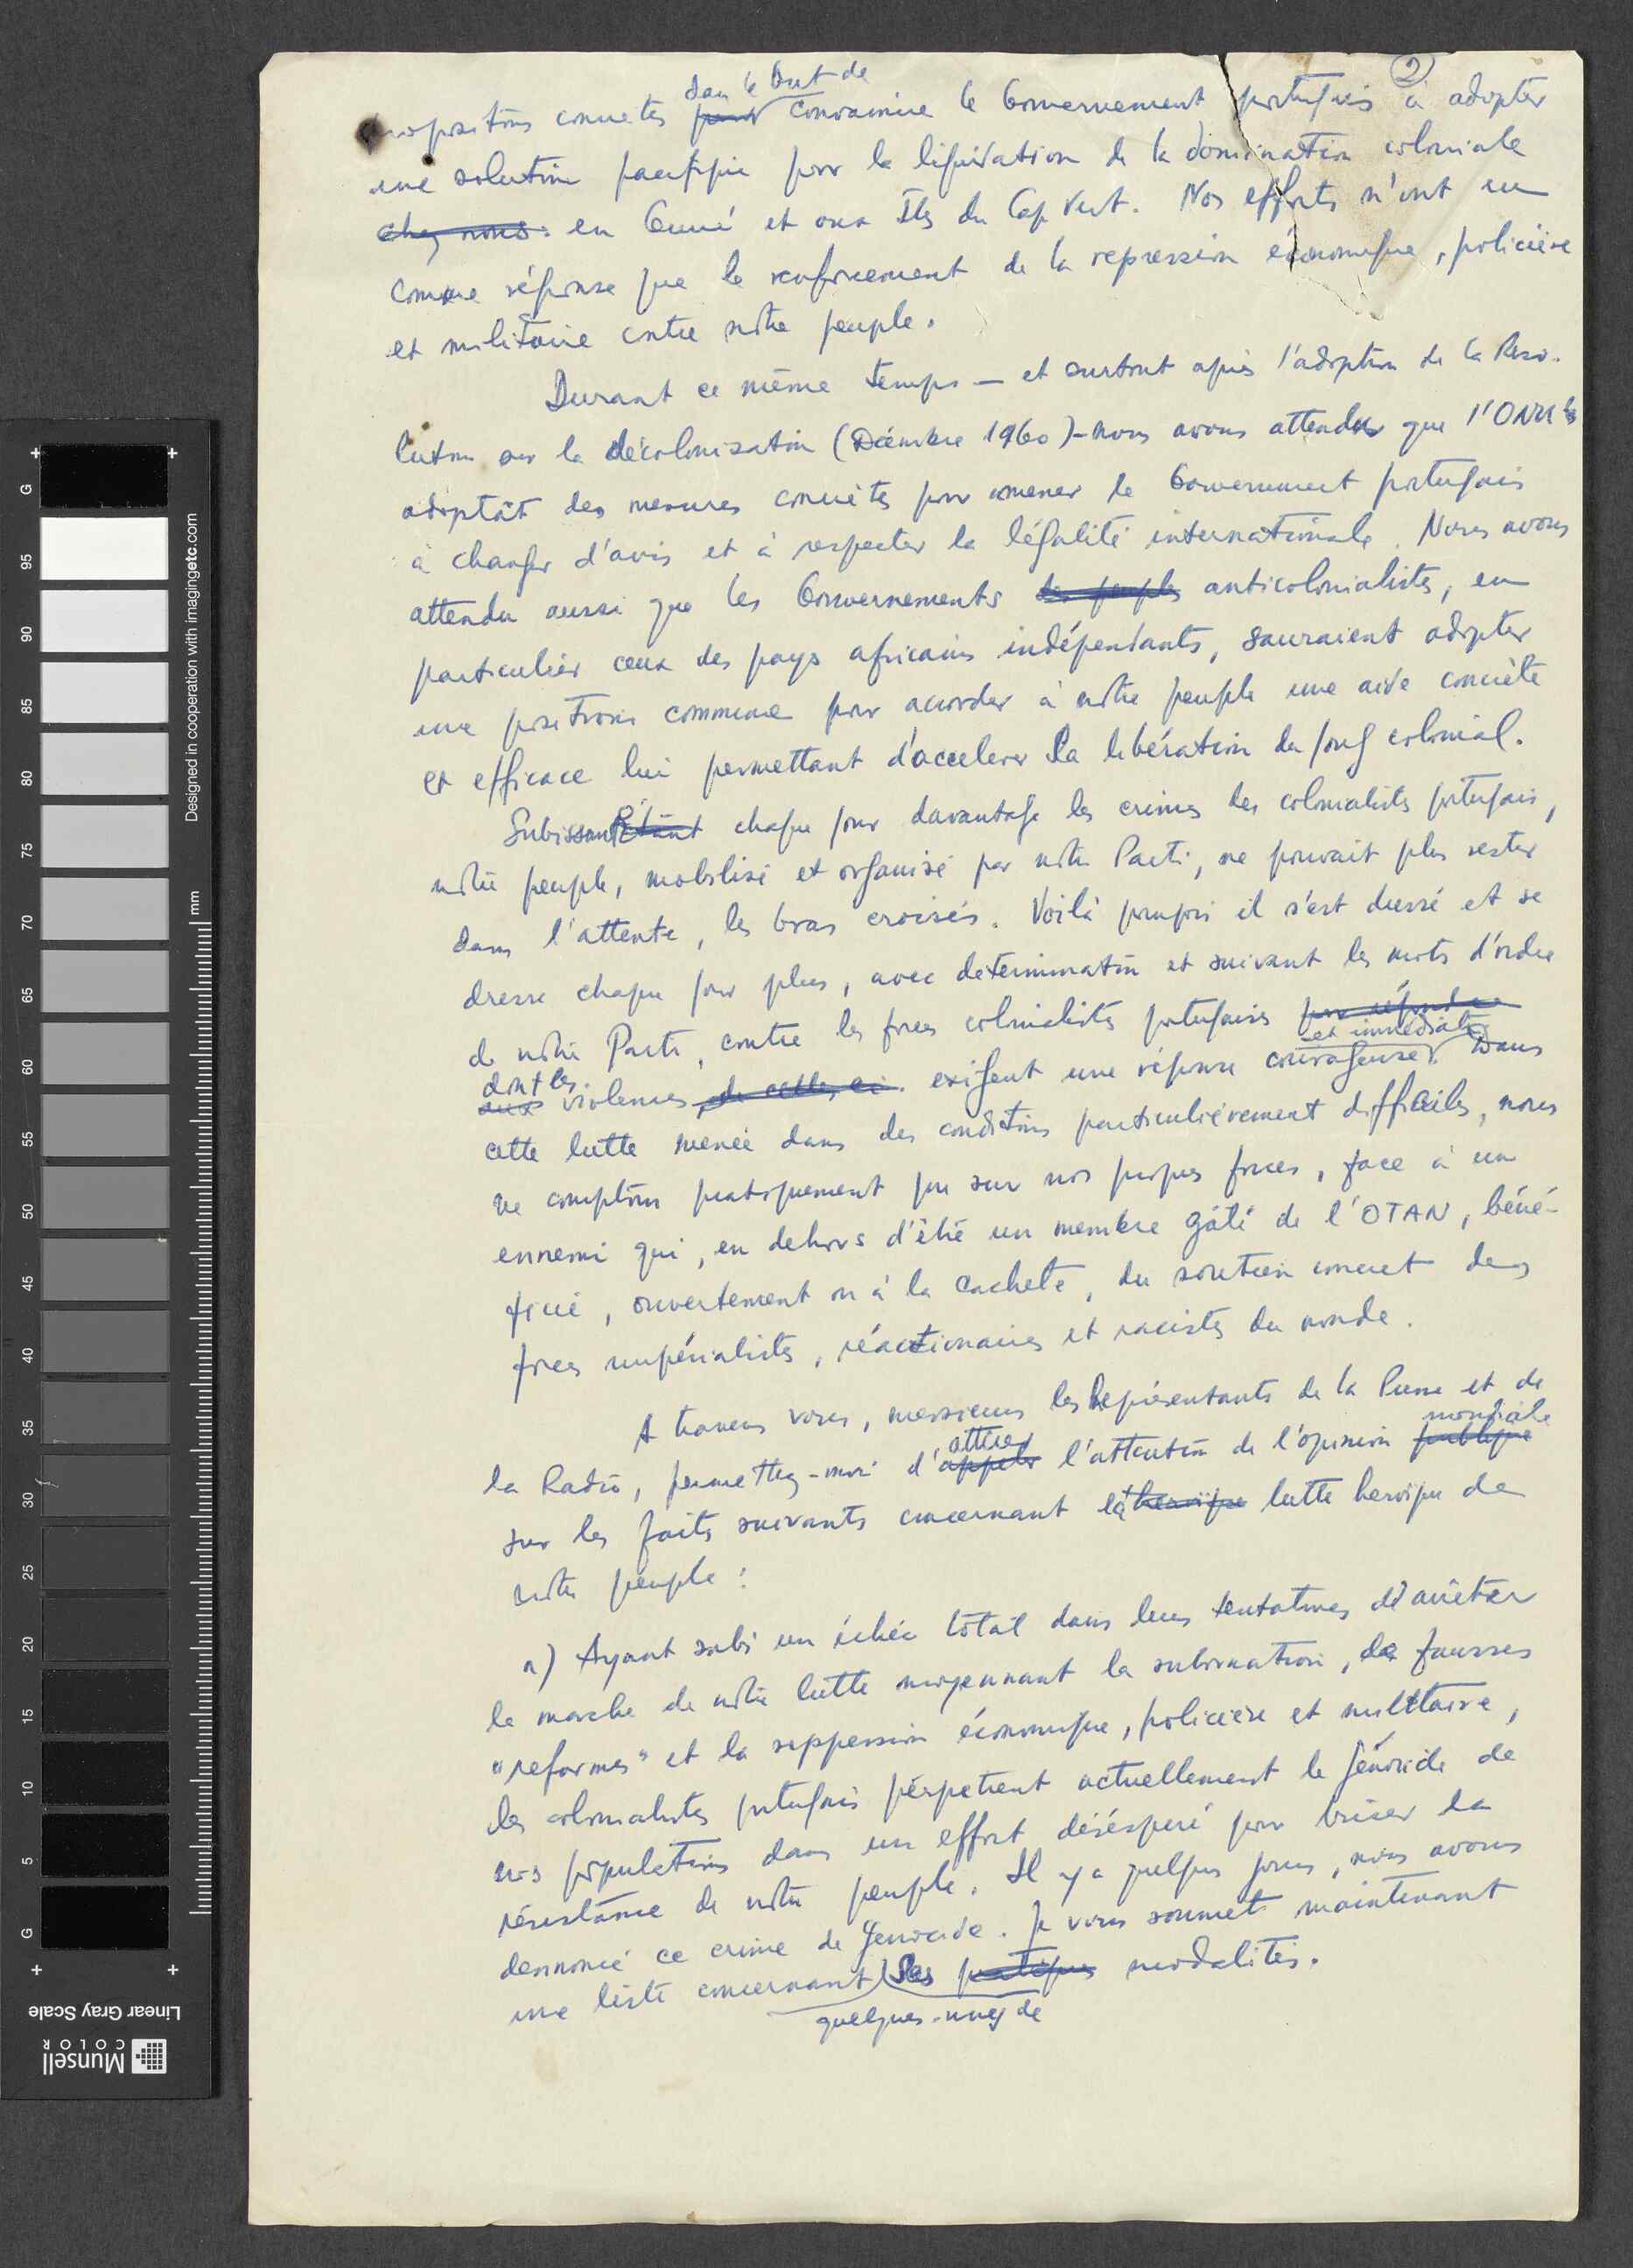 2
dans le but de
propositions concrètes pour convaincre le Gouvernement portugais à adopter
une solution pacifique pour la liquidation de la domination coloniale
chez nous. en Guiné et aux Iles du Cap Vert. Nos efforts n'ont eu
comme réponse que le renforcement de la repression économique, policière
et militaire contre notre peuple.
Durant ce même temps — et surtout après l'adoption de la Réso-
lution sur la décolonisation (Décembre 1960) - nous avons attendu que l'ONU
adoptât des mesures concrètes pour amener le Gouvernement portugais
à changer d'avis et à respecter la légalité internationale. Nous avons
attendu aussi que les Gouvernements des peuples anticolonialistes, en
particulier ceux des pays africains indépendants, sauraient adopter
une position commune pour accorder à notre peuple une aide concrète
et efficace lui permettant d'accelerer la libération du joug colonial.
Subissant Etant chaque jour davantage les crimes des colonialistes portugais,
notre peuple, mobilisé et organisé par notre Parti, ne pouvait plus rester
dans l'attente, les bras croisés. Voilà pourquoi il s'est dressé et se
dresse chaque jour plus, avec determination et suivant les mots d'ordre
de notre Parti, contre les forces colonialistes portugaises pour répondre
dont les
et immédiate
aux violences de celles-ci. exigent une réponse courageuse. Dans
cette lutte menée dans des conditions particulièrement difficiles, nous
ne comptons pratiquement que sur nos propres forces, face à un
ennemi qui, en dehors d'être un membre gâté de l'OTAN, béné-
ficie, ouvertement ou à la cachete, du soutien concret des
forces impérialistes, réactionaires et racistes du monde.
A travers vous, messieurs les Représentants de la Presse et de
attirer
mondiale
la Radio, permettez-moi d'appeler l'attention de l'opinion publique
sur les faits suivants concernant la heroïque lutte heroïque de
notre peuple :
a) Ayant subi un échec total dans leurs tentatives d'arrêter
la marche de notre lutte moyennant la subornation, de fausses
"reformes" et la reppression économique, policière et militaire,
les colonialistes portugais perpetrent actuellement le génocide de
nos populations dans un effort désésperé pour briser la
résistance de notre peuple. Il y a quelques jours, nous avons
dennoncé ce crime de génocide. Je vous soumet maintenant
une liste concernant ses pratiques modalités.
quelques-unes de
Designed in cooperation with imagingetc.com
mm
G 95 90 85 80 75 70 65 60 55 50 45 40 35 30 25 20 15 10 5 G
Linear Gray Scale
Munsell
COLOR